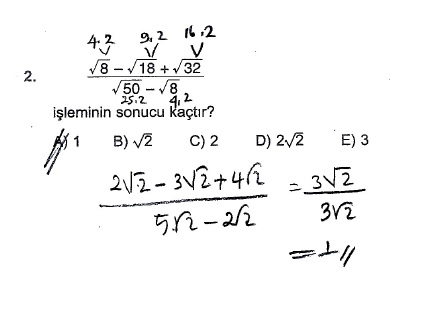 4.2 9.2 16.2
2. √8 − √18 + √32
√50 − √8
25.2 4.2
işleminin sonucu kaçtır?
A) 1 B) √2 C) 2 D) 2√2 E) 3
2√2 − 3√2 + 4√2 = 3√2
5√2 − 2√2 3√2
= 1